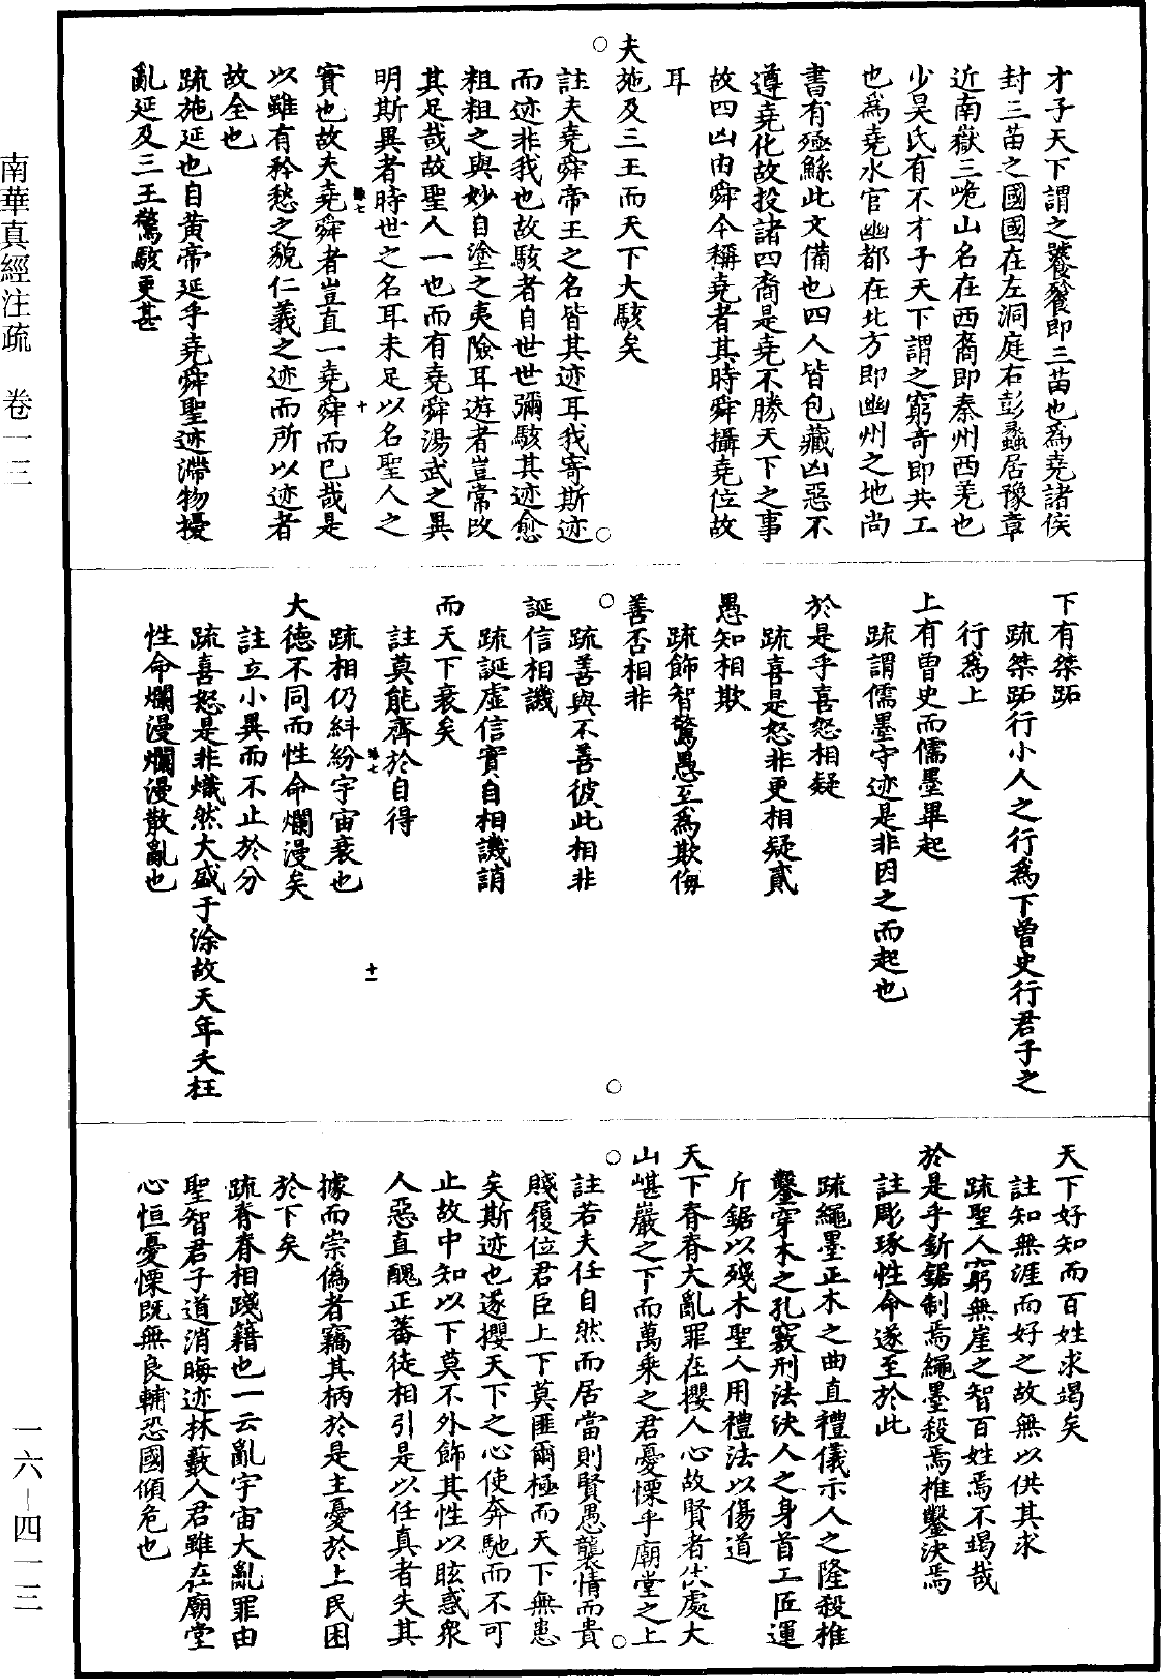 才子天下謂之饕餮即三苗也為堯諸侯
封三苗之國國在左洞庭右彭蠡居豫章
近南嶽三峗山名在西裔即秦州西羌也
少昊氏有不才子天下謂之窮奇即共工
也為堯水官幽都在北方即幽州之地尚
書有殛鯀此文備也四人皆包藏凶惡不
遵堯化故投諸四裔是堯不勝天下之事
故四凶由舜今稱堯者其時舜攝堯位故
耳
夫施及三王而天下大駭矣
註夫堯舜帝王之名皆其迹耳我寄斯迹
而迹非我也故駭者自世世彌駭其迹愈
粗粗之與妙自塗之夷險耳遊者豈常改
其足哉故聖人一也而有堯舜湯武之異
明斯異者時世之名耳未足以名聖人之
實也故夫堯舜者豈直一堯舜而已哉是
以雖有矜愁之貌仁義之迹而所以迹者
故全也
疏施延也自黃帝延乎堯舜聖迹滯物擾
亂延及三王驚駭更甚
下有桀跖
疏桀跖行小人之行為下曾史行君子之
行為上
上有曾史而儒墨畢起
疏謂儒墨守迹是非因之而起也
於是乎喜怒相疑
疏喜是怒非更相疑貳
愚知相欺
疏飾智驚愚互為欺侮
善否相非
疏善與不善彼此相非
誕信相譏
疏誕虛信實自相譏誚
而天下衰矣
註莫能齊於自得
疏相仍糾紛宇宙衰也
大德不同而性命爛漫矣
註立小異而不止於分
疏喜怒是非熾然大盛于涂故天年夭枉
性命爛漫爛漫散亂也
十一
天下好知而百姓求竭矣
註知無涯而好之故無以供其求
疏聖人窮無崖之智百姓焉不竭哉
於是乎釿鋸制焉繩墨殺焉椎鑿決焉
註彫琢性命遂至於此
疏繩墨正木之曲直禮儀示人之隆殺椎
鑿穿木之孔竅刑法決人之身首工匠運
斤鋸以殘木聖人用禮法以傷道
天下脊脊大亂罪在攖人心故賢者伏處大
山嵁巖之下而萬乘之君憂慄乎廟堂之上
註若夫任自然而居當則賢愚襲情而貴
賤履位君臣上下莫匪爾極而天下無患
矣斯迹也遂攖天下之心使奔馳而不可
止故中知以下莫不外飾其性以眩惑衆
人惡直醜正蕃徒相引是以任真者失其
據而崇偽者竊其柄於是主憂於上民困
於下矣
疏脊脊相踐籍也一云亂宇宙大亂罪由
聖智君子道消晦迹林藪人君雖在廟堂
心恒憂慄既無良輔恐國傾危也
南華真經注疏　卷一三
一六—四一三